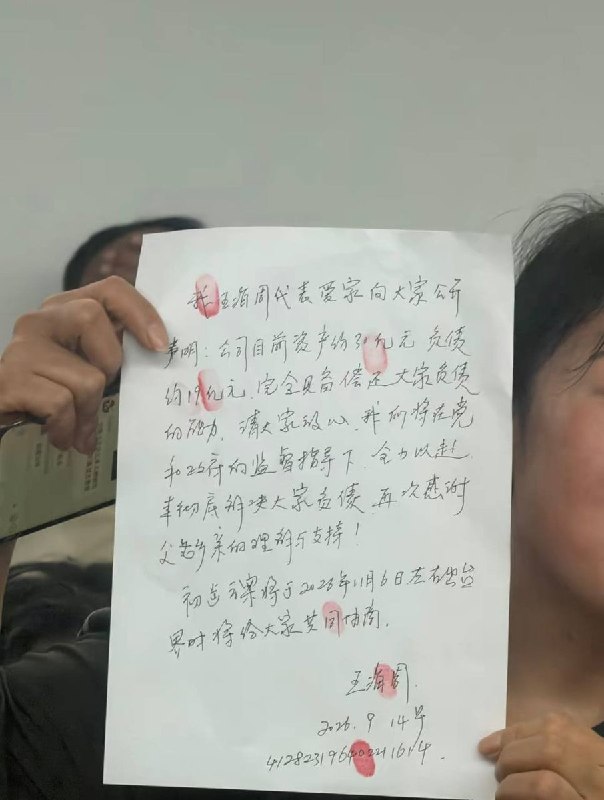 我王海周代表爱家向大家公开
声明：公司目前资产约30亿元 负债
约19亿元，完全具备偿还大家负债
的能力，请大家放心，我们将在党
和政府的监督指导下，全力以赴，
来彻底解决大家负债，再次感谢
父老乡亲的理解与支持！
初步方案将于2026年11月6日左右出台
界时将给大家共同协商．
王海周．
2026．9 14号